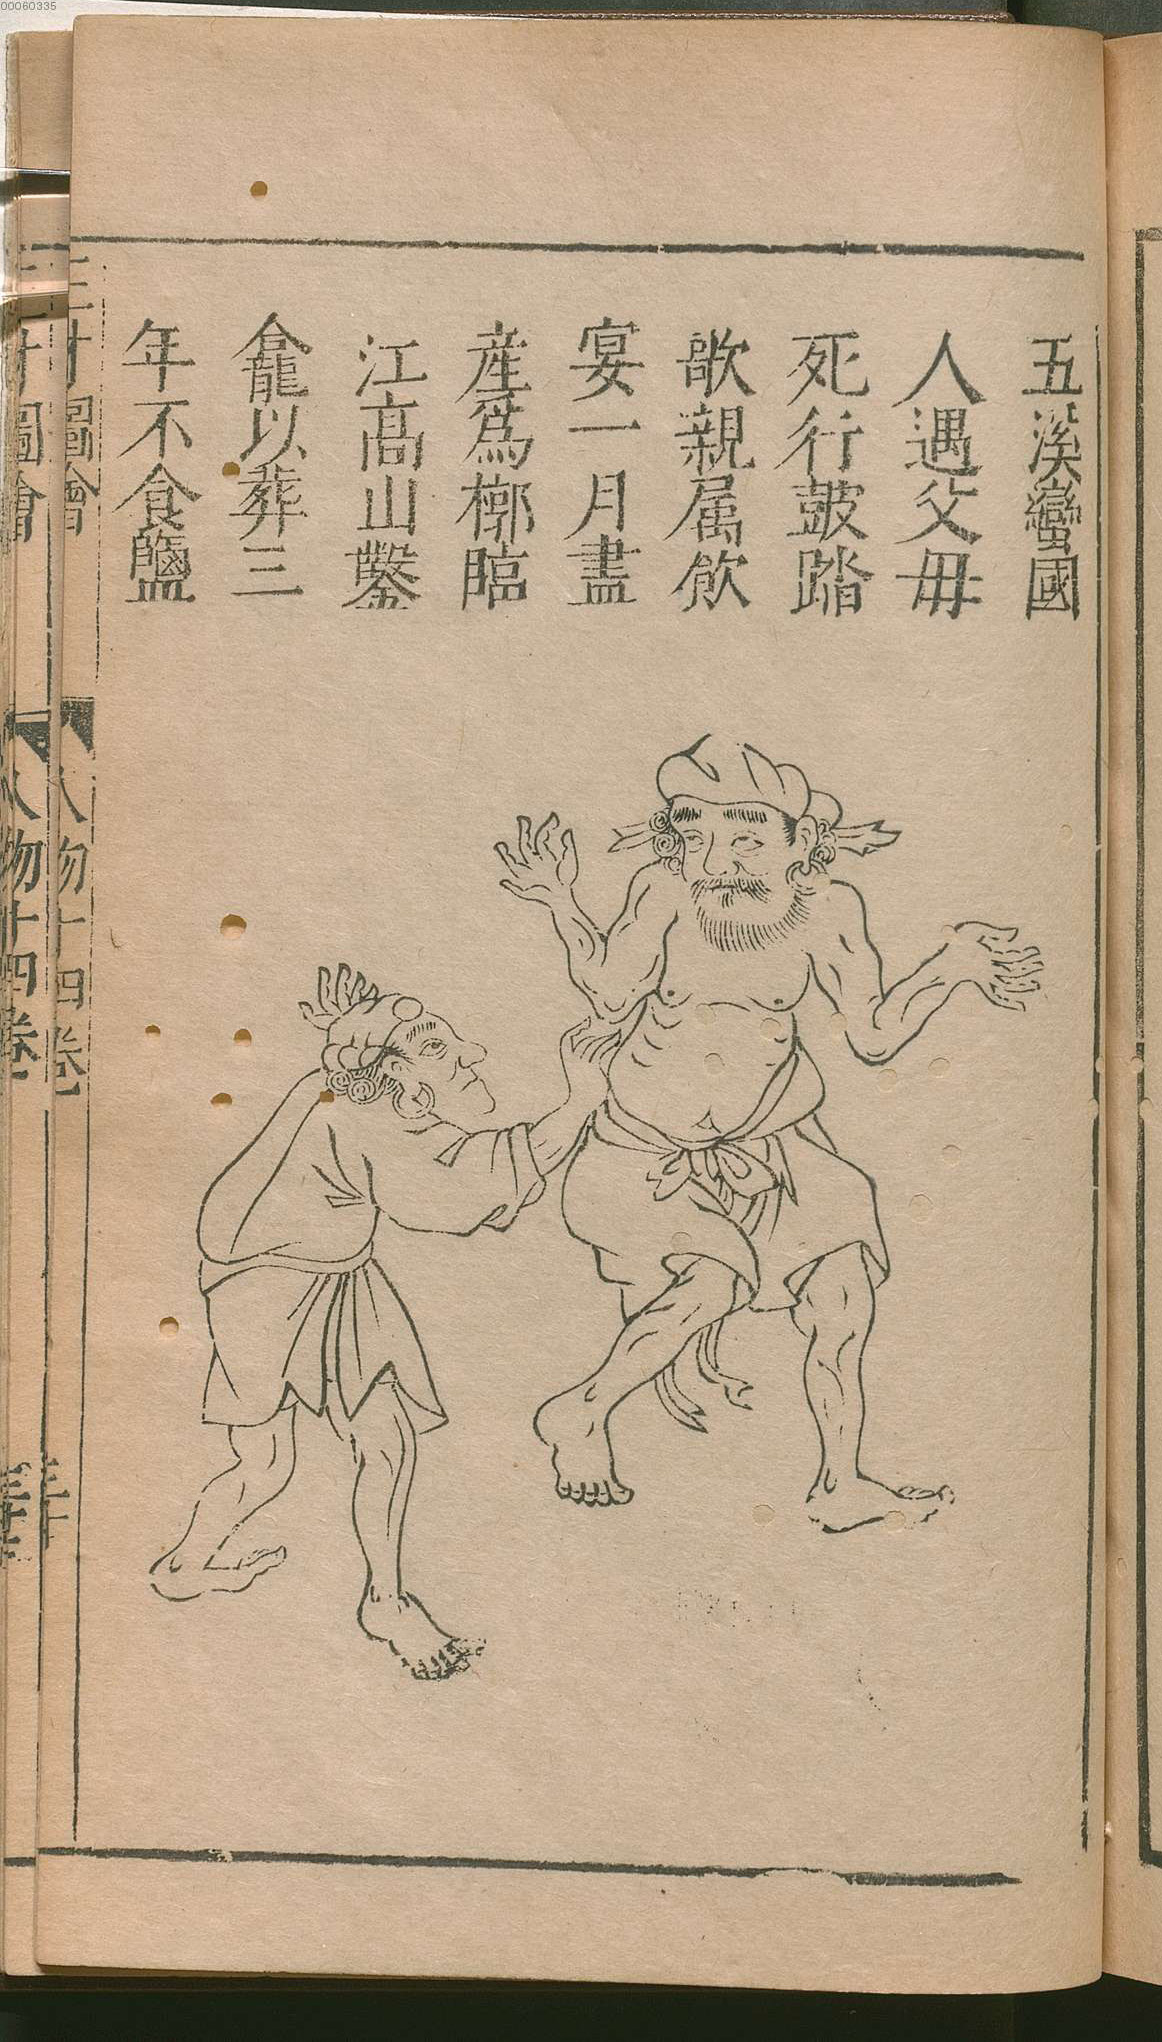 五溪蠻國
人遇父毋
死行皷踏
歌親属飲
宴一月盡
産爲槨臨
江高山鑿
龕以葬三
年不食鹽
三才圖會
人物十四卷
三才圖會
人物十四卷
00060335